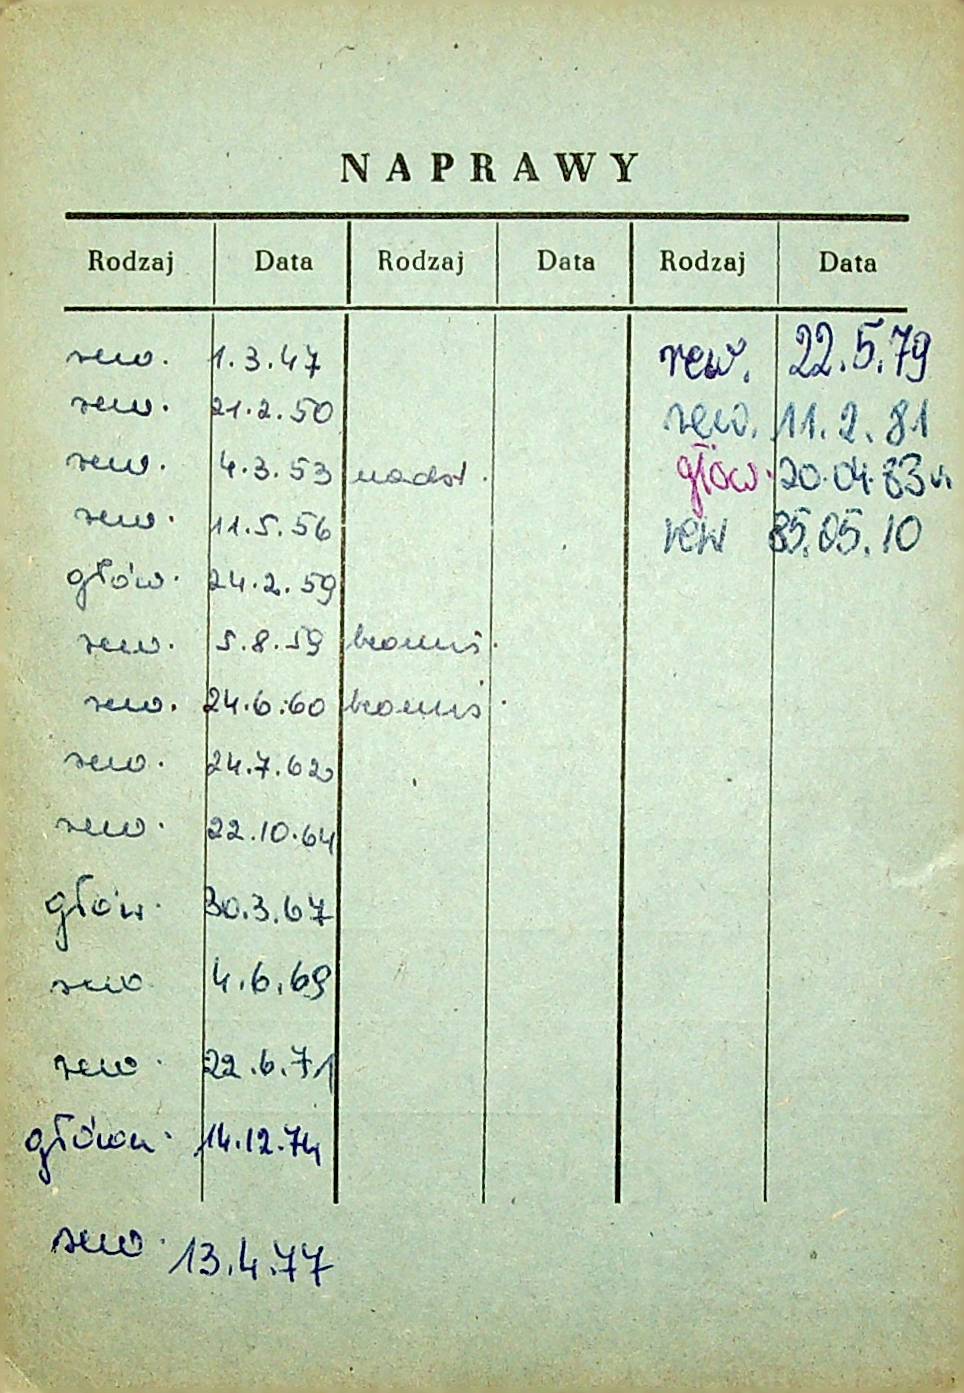 NAPRAWY
Rodzaj Data Rodzaj Data Rodzaj Data
rew. 1.3.47 rew. 22.5.79
rew. 21.2.50 rew. 11.2.81
rew. 4.3.53 nadst. głów. 20.04.83
rew. 11.5.56 rew 85.05.10
głów. 24.2.59
rew. 5.8.59
rew. 24.6.60
rew. 24.7.62
rew. 22.10.64
głów. 30.3.67
rew 4.6.69
rew. 22.6.71
główn. 14.12.74
rew. 13.4.77